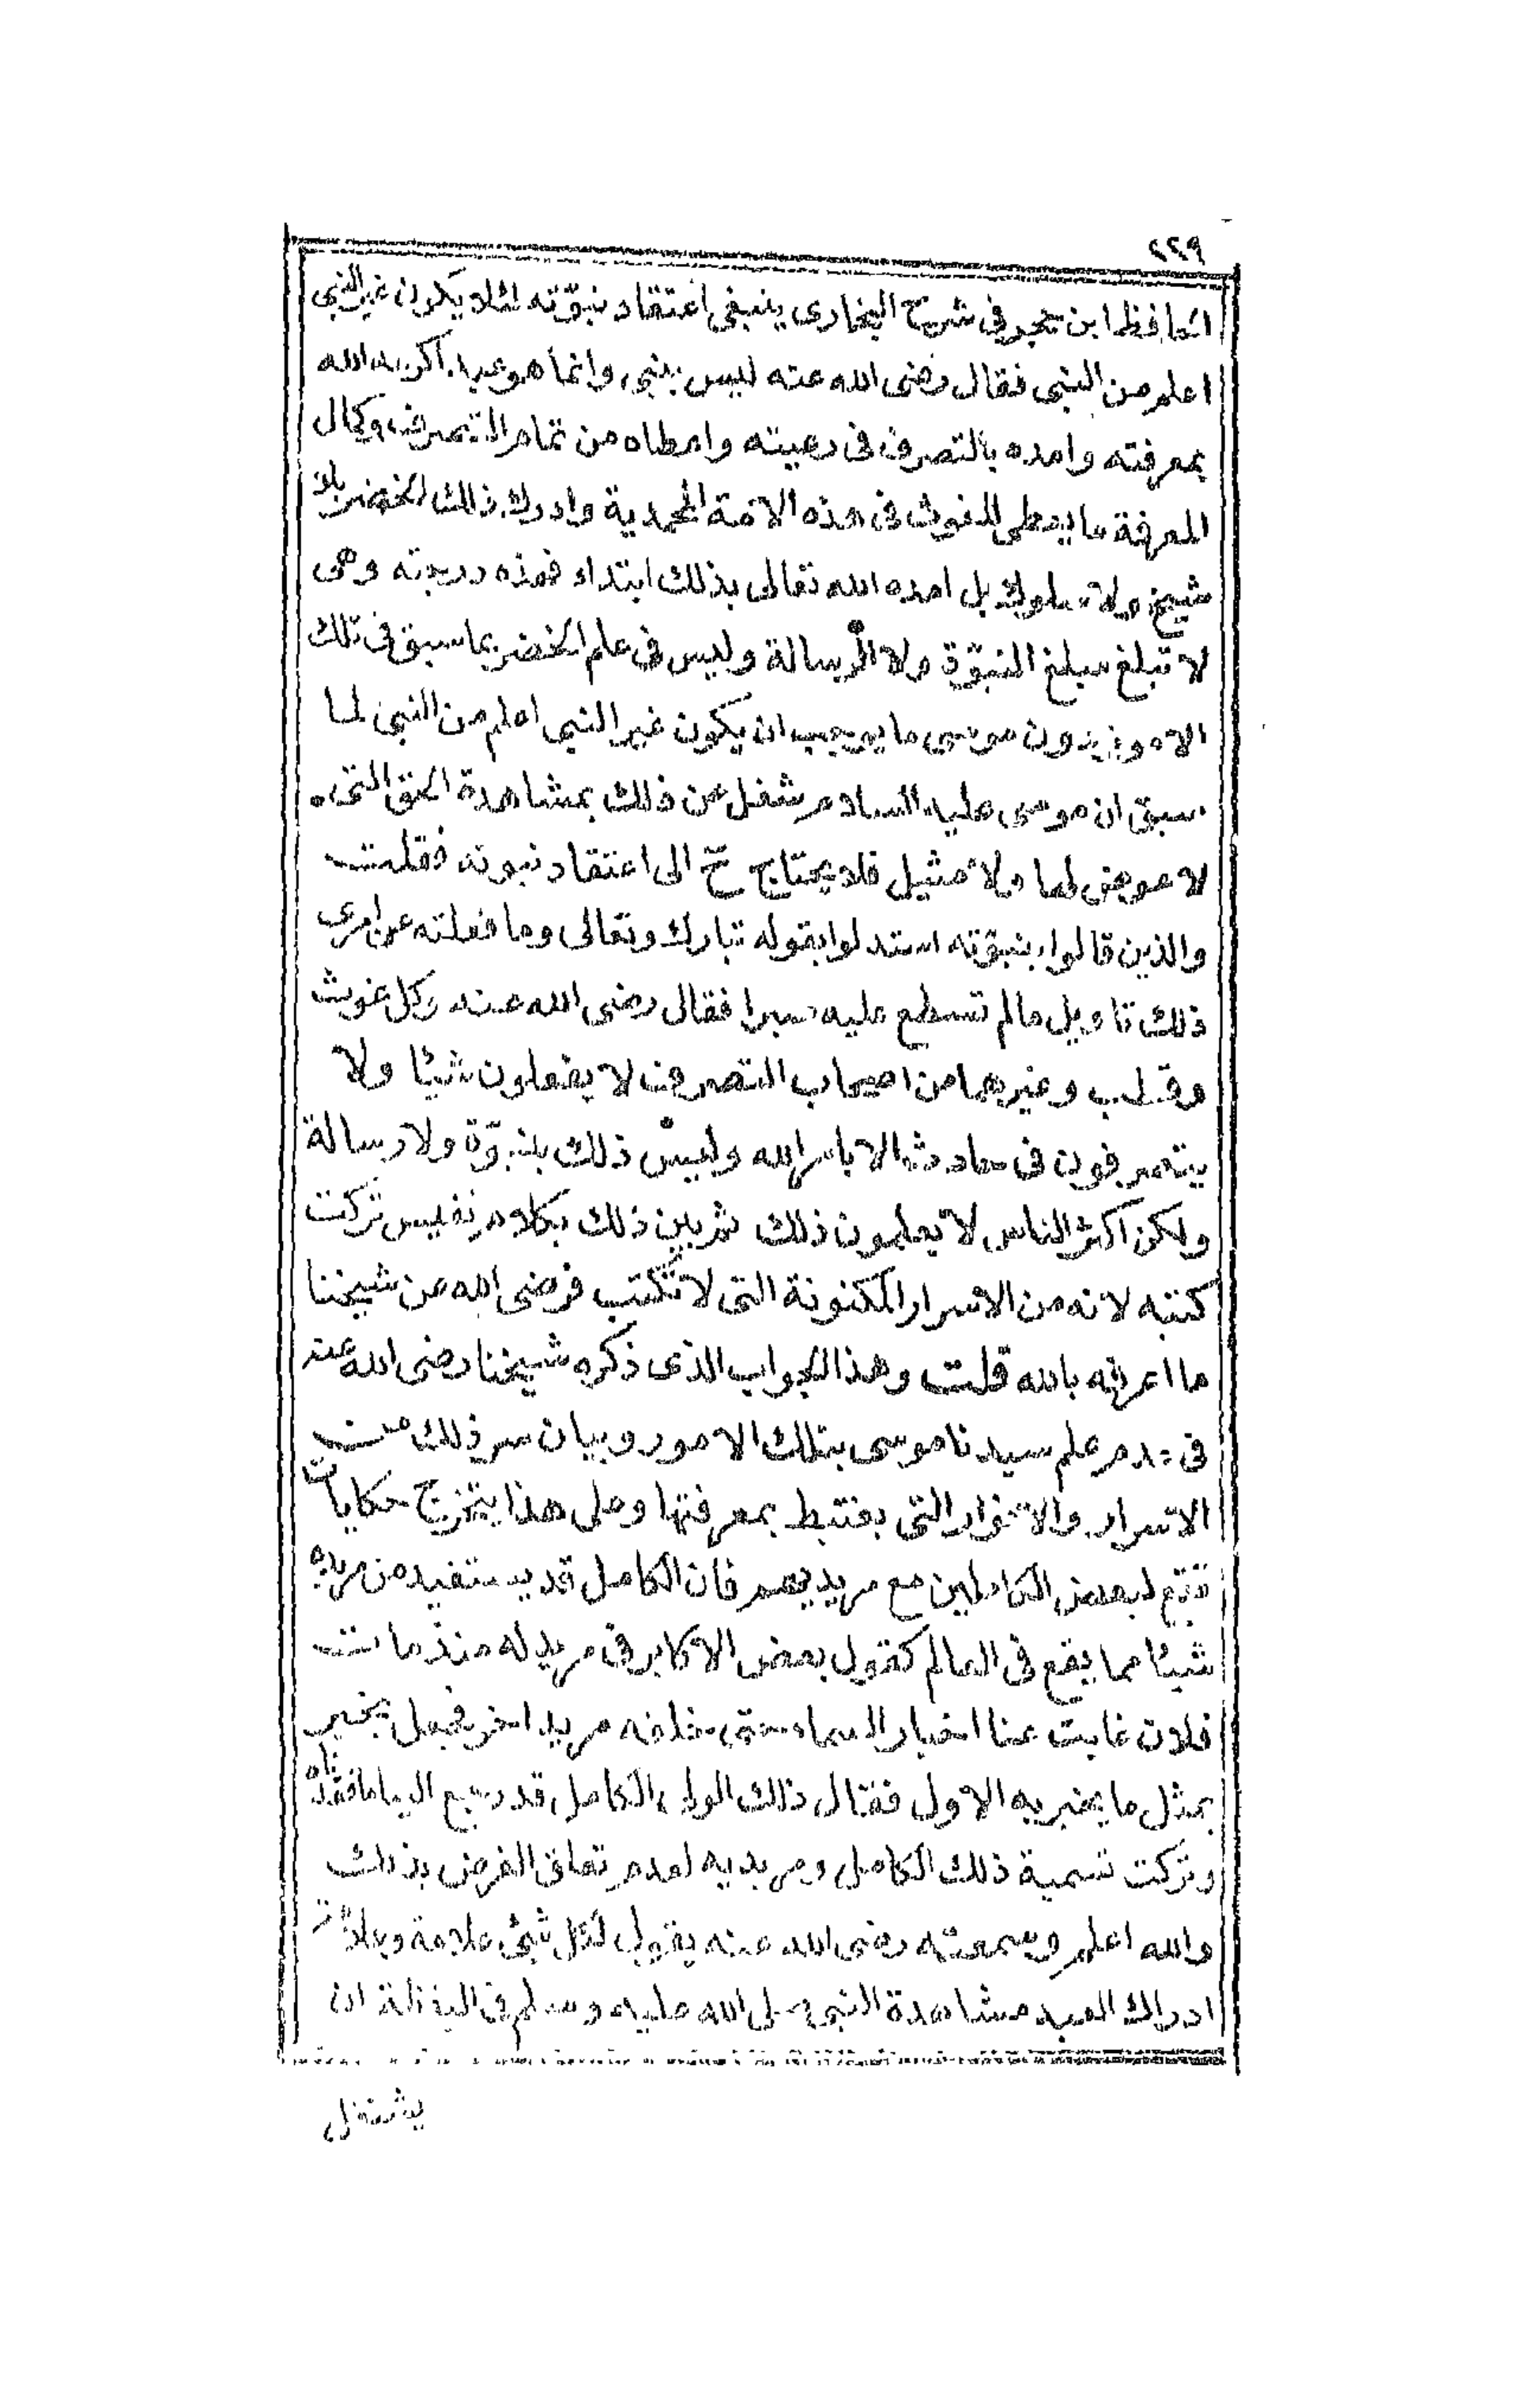 ٢٢٩
الحافظ ابن حجر فى شرح البخارى ينبغى اعتقاد نبوّته لئلا يكون غير النبى
اعلم من النبى فقال رضى الله عنه ليس بنبى وانما هو عبد اكرمه الله
بمعرفته وامده بالتصرف فى رعيته واعطاه من تمام التصرف وكمال
المعرفة ما يعطى للغوث فى هذه الامة المحمدية وادرك ذلك الخضر بلا
شيخ ولا سلوك بل امده الله تعالى بذلك ابتداء فهذه درجته وهى
لا تبلغ مبلغ النبوّة ولا الرسالة وليس فى علم الخضر بما سبق فى تلك
الامور دون موسى ما يوجب ان يكون غير النبى اعلم من النبى لما
سبق ان موسى عليه السلام شغل عن ذلك بمشاهدة الحق التى
لا عوض لها ولا مثيل فلا يحتاج ح الى اعتقاد نبوته فقلت
والذين قالوا بنبوّته استدلوا بقوله تبارك وتعالى وما فعلته عن امرى
ذلك تاويل مالم تسطع عليه صبرا فقال رضى الله عنه وكل غوث
وقطب وغيرهما من اصحاب التصرف لا يفعلون شيئا ولا
يتصرفون فى حادث الا بامر الله وليس ذلك بنبوّة ولا رسالة
ولكن اكثر الناس لا يعلمون ذلك ثم بين ذلك بكلام نفيس تركت
كتبه لانه من الاسرار المكنونة التى لا تكتب فرضى الله عن شيخنا
ما اعرفه بالله قلت وهذا الجواب الذى ذكره شيخنا رضى الله عنه
فى عدم علم سيدنا موسى بتلك الامور وبيان سر ذلك من
الاسرار والانوار التى يغتبط بمعرفتها وعلى هذا يتخرج حكايات
تقع لبعض الكاملين مع مريديهم فان الكامل قد يستفيد من مريده
شيئا مما يقع فى العالم كقول بعض الاكابر فى مريد له منذ مات
فلان غابت عنا اخبار السماء حتى خلفه مريد اخر فجعل يخبر
بمثل ما يخبر به الاول فقال ذلك الولى الكامل قد رجع الينا ما فقدناه
وتركت تسمية ذلك الكامل ومريديه لعدم تعلق الغرض بذلك
والله اعلم وسمعته رضى الله عنه يقول لكل شئ علامة وعلامة
ادراك العبد مشاهدة النبى صلى الله عليه وسلم فى اليقظة ان
يشتغل